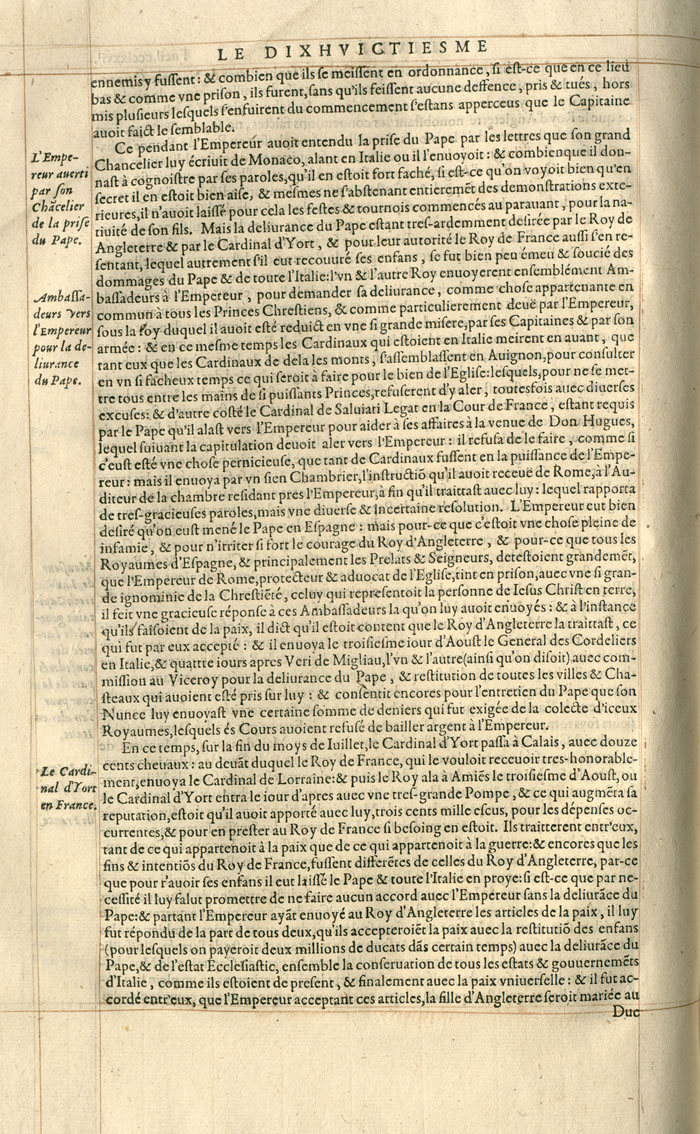 LE DIXHVICTIESME
ennemis y fuſſent: & combien que ils ſe meiſſent en ordonnance, ſi eſt-ce que en ce lieu
bas & comme vne priſon, ils furent, ſans qu'ils feiſſent aucune deffence, pris & tués, hors
mis pluſieurs leſquels s'enfuirent du commencement s'eſtans apperceus que le Capitaine
auoit faict le ſemblable.
Ce pendant l'Empereur auoit entendu la priſe du Pape par les lettres que ſon grand
Chancelier luy écriuit de Monaco, alant en Italie ou il l'enuoyoit: & combienque il don-
naſt à cognoiſtre par ſes paroles, qu'il en eſtoit fort faché, ſi eſt-ce qu'on voyoit bien qu'en
ſecret il en eſtoit bien aiſe, & meſmes ne s'abſtenant entieremēt des demonſtrations exte-
rieures, il n'auoit laiſſé pour cela les feſtes & tournois commencés au parauant, pour la na-
tiuité de ſon fils. Mais la deliurance du Pape eſtant tres-ardemment deſirée par le Roy de
Angleterre & par le Cardinal d'Yort, & pour leur autorité le Roy de France auſſi s'en re-
ſentant, lequel autrement s'il eut recouuré ses enfans, ſe fut bien peu émeu & ſoucié des
dommages du Pape & de toute l'Italie: l'vn & l'autre Roy enuoyerent enſemblément Am-
baſſadeurs à l'Empereur, pour demander ſa deliurance, comme choſe appartenante en
commun à tous les Princes Chreſtiens, & comme particulierement deuë par l'Empereur,
ſous la foy duquel il auoit eſté reduict en vne ſi grande miſere, par ſes Capitaines & par ſon
armée: & en ce meſme temps les Cardinaux qui eſtoient en Italie meirent en auant, que
tant eux que les Cardinaux de dela les monts, s'aſſemblaſſent en Auignon, pour conſulter
en vn ſi facheux temps ce qui ſeroit à faire pour le bien de l'Egliſe: leſquels, pour ne ſe met-
tre tous entre les mains de ſi puiſſants Princes, refuſerent d'y aler, toutesfois auec diuerſes
excuſes: & d'autre coſté le Cardinal de Saluiati Legat en la Cour de France, eſtant requis
par le Pape qu'il alaſt vers l'Empereur pour aider à ſes affaires à la venue de Don Hugues,
lequel ſuiuant la capitulation deuoit aler vers l'Empereur: il refuſa de le faire, comme ſi
c'euſt eſté vne choſe pernicieuſe, que tant de Cardinaux fuſſent en la puiſſance de l'Empe-
reur: mais il enuoya par vn ſien Chambrier, l'inſtructiō qu'il auoit receuë de Rome, à l'Au-
diteur de la chambre reſidant pres l'Empereur, à fin qu'il traittaſt auec luy: lequel rapporta
de tres-gracieuſes paroles, mais vne diuerſe & incertaine reſolution. L'Empereur eut bien
deſiré qu'on euſt mené le Pape en Eſpagne: mais pour-ce que c'eſtoit vne choſe pleine de
infamie, & pour n'irriter ſi fort le courage du Roy d'Angleterre, & pour-ce que tous les
Royaumes d'Eſpagne, & principalement les Prelats & Seigneurs, deteſtoient grandemēt,
que l'Empereur de Rome, protecteur & aduocat de l'Egliſe, tint en priſon, auec vne ſi gran-
de ignominie de la Chreſtiēté, celuy qui repreſentoit la perſonne de Ieſus Chriſt en terre,
il feit vne gracieuſe réponſe à ces Ambaſſadeurs la qu'on luy auoit enuoyés: & à l'inſtance
qu'ils faiſoient de la paix, il dict qu'il eſtoit content que le Roy d'Angleterre la traittaſt, ce
qui fut par eux accepté: & il enuoya le troiſieſme iour d'Aouſt le General des Cordeliers
en Italie, & quattre iours apres Veri de Migliau, l'vn & l'autre (ainſi qu'on diſoit) auec com-
miſſion au Viceroy pour la deliurance du Pape, & reſtitution de toutes les villes & Cha-
ſteaux qui auoient eſté pris ſur luy: & conſentit encores pour l'entretien du Pape que ſon
Nunce luy enuoyaſt vne certaine ſomme de deniers qui fut exigée de la colecte d'iceux
Royaumes, leſquels és Cours auoient refuſé de bailler argent à l'Empereur.
En ce temps, ſur la fin du moys de Iuillet, le Cardinal d'Yort paſſa à Calais, auec douze
cents cheuaux: au deuāt duquel le Roy de France, qui le vouloit receuoir tres-honorable-
ment, enuoya le Cardinal de Lorraine: & puis le Roy ala à Amiēs le troiſieſme d'Aouſt, ou
le Cardinal d'Yort entra le iour d'apres auec vne tres-grande Pompe, & ce qui augmēta ſa
reputation, eſtoit qu'il auoit apporté auec luy, trois cents mille eſcus, pour les dépenſes oc-
currentes, & pour en preſter au Roy de France ſi beſoing en eſtoit. Ils traitterent entr'eux,
tant de ce qui appartenoit à la paix que de ce qui appartenoit à la guerre: & encores que les
fins & intentiōs du Roy de France, fuſſent differētes de celles du Roy d'Angleterre, par-ce
que pour r'auoir ſes enfans il eut laiſſé le Pape & toute l'Italie en proye: ſi eſt-ce que par ne-
ceſſité il luy falut promettre de ne faire aucun accord auec l'Empereur ſans la deliurāce du
Pape: & partant l'Empereur ayāt enuoyé au Roy d'Angleterre les articles de la paix, il luy
fut répondu de la part de tous deux, qu'ils accepteroiēt la paix auec la reſtitutiō des enfans
(pour leſquels on payeroit deux millions de ducats dās certain temps) auec la deliurāce du
Pape, & de l'eſtat Eccleſiaſtic, enſemble la conſeruation de tous les eſtats & gouuernemēts
d'Italie, comme ils eſtoient de preſent, & finalement auec la paix vniuerſelle: & il fut ac-
cordé entr'eux, que l'Empereur acceptant ces articles, la fille d'Angleterre ſeroit mariée au
Duc
L'Empe-
reur auerti
par ſon
Chācelier
de la priſe
du Pape.
Ambaſſa-
deurs vers
l'Empereur
pour la de-
liurance
du Pape.
Le Cardi-
nal d'Yort
en France.